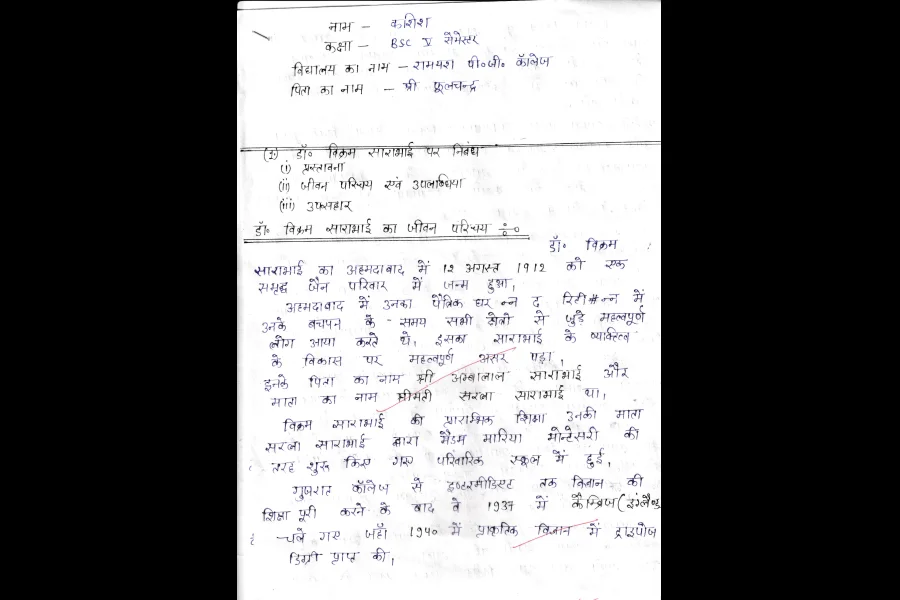 नाम – कशिश
कक्षा – BSC V सेमेस्टर
विद्यालय का नाम – रामयश पी०जी० कॉलेज
पिता का नाम – श्री फूलचन्द्र
(1) डॉ० विक्रम साराभाई पर निबंध
(i) प्रस्तावना
(ii) जीवन परिचय एवं उपलब्धिया
(iii) उपसंहार
डॉ० विक्रम साराभाई का जीवन परिचय
डॉ० विक्रम
साराभाई का अहमदाबाद में 12 अगस्त 1912 को एक
समृद्ध जैन परिवार में जन्म हुआ,
अहमदाबाद में उनका पैत्रिक घर न्न द रिटी#न्न में
उनके बचपन के समय सभी क्षेत्रो से जुड़े महत्वपूर्ण
लोग आया करते थे, इसका साराभाई के व्यक्तित्व
के विकास पर महत्वपूर्ण असर पड़ा,
इनके पिता का नाम श्री अम्बालाल साराभाई और
माता का नाम श्रीमती सरला साराभाई था,
विक्रम साराभाई की प्रारम्भिक शिक्षा उनकी माता
सरला साराभाई द्वारा मैडम मारिया मोन्टेसरी की
तरह शुरू किए गए परिवारिक स्कूल में हुई,
गुजरात कॉलेज से इण्टरमीडिएट तक विज्ञान की
शिक्षा पूरी करने के बाद वे 1937 में कैम्ब्रिज (इंग्लैण्ड
चले गए जहाँ 1940 में प्राकृतिक विज्ञान में ट्राइपोज
डिग्री प्राप्त की,